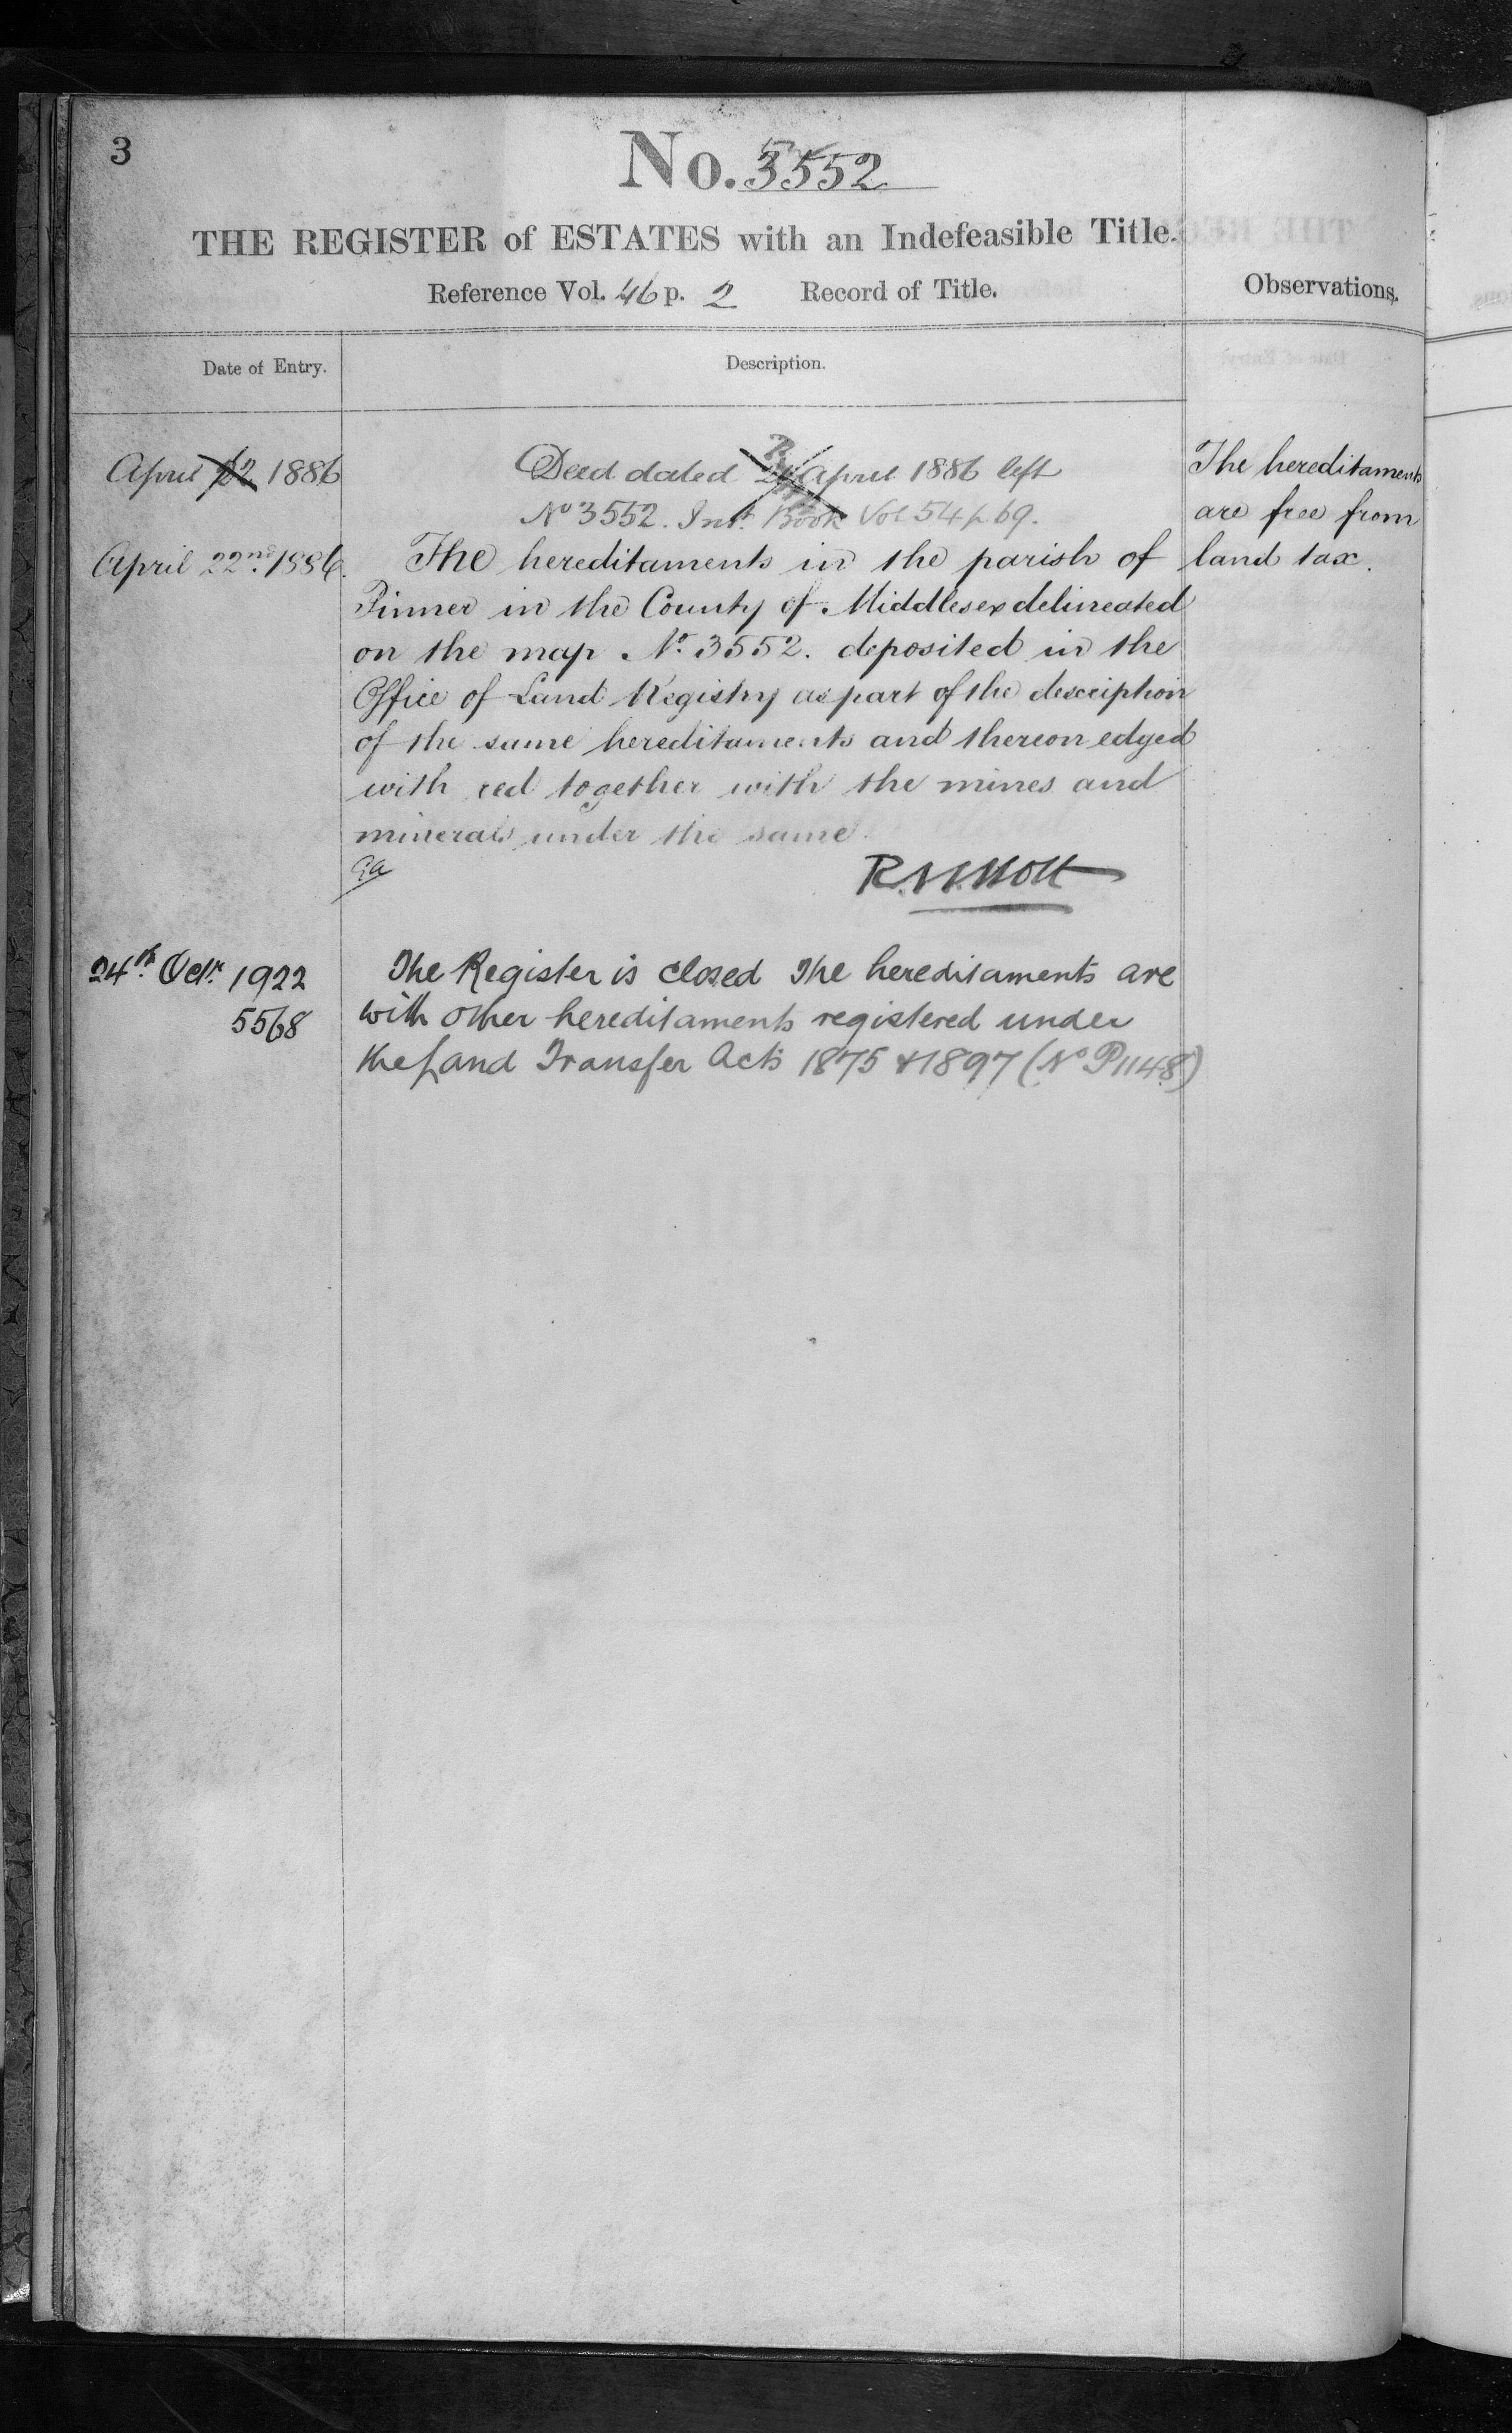 3
No. 3552
THE REGISTER of ESTATES with an Indefeasible Title.
Reference Vol. 46 p. 2 Record of Title.
Observations.
Date of Entry.
Description.
April 22 1886
Deed dated April 1886 left
No 3552. Inst. Book Vol 54 p 69.
April 22nd 1886.
The hereditaments in the parish of
Pinner in the County of Middlesex delineated
on the map No. 3552. deposited in the
Office of Land Registry as part of the description
of the same hereditaments and thereon edged
with red together with the mines and
minerals under the same.
The hereditaments
are free from
land tax.
24th Octr. 1922
5568
The Register is closed The hereditaments are
with other hereditaments registered under
the Land Transfer Acts 1875 & 1897 (No P1148)